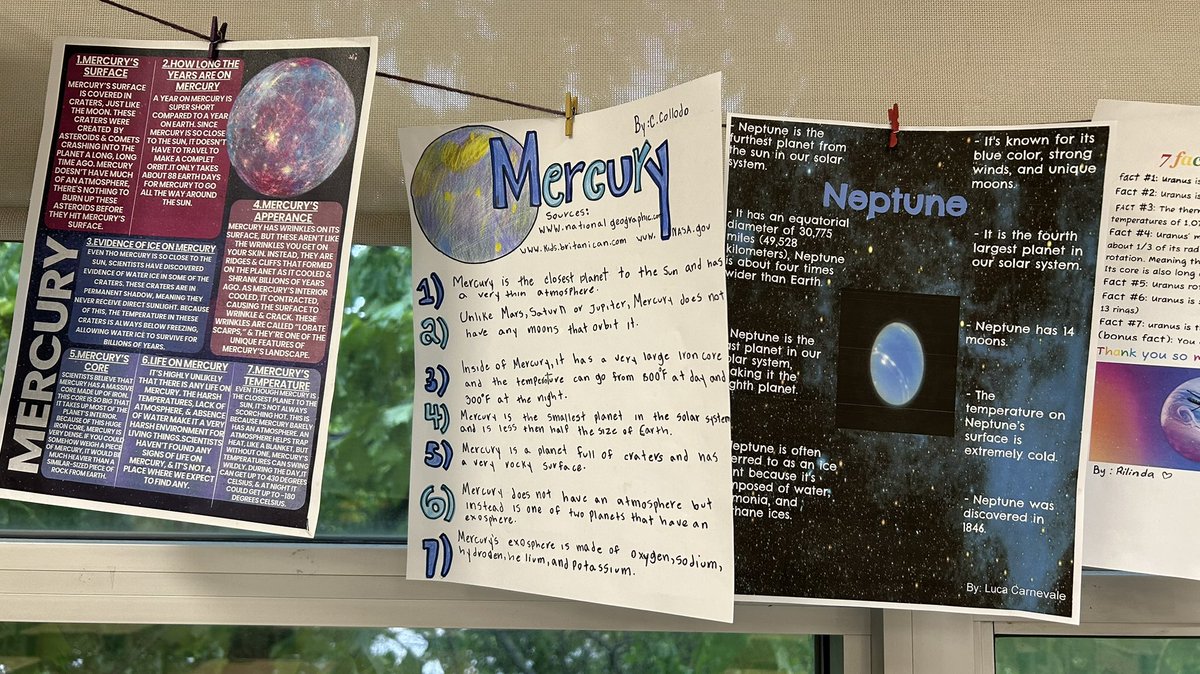 MERCURY
1.MERCURY'S
SURFACE
MERCURY'S SURFACE
IS COVERED IN
CRATERS, JUST LIKE
THE MOON. THESE
CRATERS WERE
CREATED BY
ASTEROIDS & COMETS
CRASHING INTO THE
PLANET A LONG, LONG
TIME AGO. MERCURY
DOESN'T HAVE MUCH
OF AN ATMOSPHERE,
THERE'S NOTHING
TO BURN UP THESE
ASTEROIDS BEFORE
THEY HIT MERCURY'S
SURFACE.
2.HOW LONG THE
YEARS ARE ON
MERCURY
A YEAR ON MERCURY IS
SUPER SHORT
COMPARED TO A YEAR
ON EARTH. SINCE
MERCURY IS SO CLOSE
TO THE SUN, IT DOESN'T
HAVE TO TRAVEL TO
MAKE A COMPLET
ORBIT.IT ONLY TAKES
ABOUT 88 EARTH DAYS
FOR MERCURY TO GO
ALL THE WAY AROUND
THE SUN.
3.EVIDENCE OF ICE ON MERCURY
EVEN THO MERCURY IS SO CLOSE TO THE
SUN, SCIENTISTS HAVE DISCOVERED
EVIDENCE OF WATER ICE IN SOME OF THE
CRATERS. THESE CRATERS ARE IN
PERMANENT SHADOW, MEANING THEY
NEVER RECEIVE DIRECT SUNLIGHT. BECAUSE
OF THIS, THE TEMPERATURE IN THESE
CRATERS IS ALWAYS BELOW FREEZING,
ALLOWING WATER ICE TO SURVIVE FOR
BILLIONS OF YEARS.
4.MERCURY'S
APPERANCE
MERCURY HAS WRINKLES ON ITS
SURFACE, BUT THESE AREN'T LIKE
THE WRINKLES YOU GET ON
YOUR SKIN. INSTEAD, THEY ARE
RIDGES & CLIFFS THAT FORMED
ON THE PLANET AS IT COOLED &
SHRANK BILLIONS OF YEARS
AGO. AS MERCURY'S INTERIOR
COOLED, IT CONTRACTED,
CAUSING THE SURFACE TO
WRINKLE & CRACK. THESE
WRINKLES ARE CALLED "LOBATE
SCARPS," & THEY'RE ONE OF THE
UNIQUE FEATURES OF
MERCURY'S LANDSCAPE.
5.MERCURY'S
CORE
SCIENTISTS BELIEVE THAT
MERCURY HAS A MASSIVE
CORE MADE UP OF IRON.
THIS CORE IS SO BIG THAT
IT TAKES UP MOST OF THE
PLANET'S INTERIOR.
BECAUSE OF THIS HUGE
IRON CORE, MERCURY IS
VERY DENSE. IF YOU COULD
SOMEHOW WEIGH A PIECE
OF MERCURY, IT WOULD BE
MUCH HEAVIER THAN A
SIMILAR-SIZED PIECE OF
ROCK FROM EARTH.
6.LIFE ON MERCURY
IT'S HIGHLY UNLIKELY
THAT THERE IS ANY LIFE ON
MERCURY. THE HARSH
TEMPERATURES, LACK OF
ATMOSPHERE, & ABSENCE
OF WATER MAKE IT A VERY
HARSH ENVIRONMENT FOR
LIVING THINGS.SCIENTISTS
HAVEN'T FOUND ANY
SIGNS OF LIFE ON
MERCURY, & IT'S NOT A
PLACE WHERE WE EXPECT
TO FIND ANY.
7.MERCURY'S
TEMPERATURE
EVEN THOUGH MERCURY IS
THE CLOSEST PLANET TO THE
SUN, IT'S NOT ALWAYS
SCORCHING HOT. THIS IS
BECAUSE MERCURY BARELY
HAS AN ATMOSPHERE. AN
ATMOSPHERE HELPS TRAP
HEAT, LIKE A BLANKET, BUT
WITHOUT ONE, MERCURY'S
TEMPERATURES CAN SWING
WILDLY. DURING THE DAY,IT
CAN GET UP TO 430 DEGREES
CELSIUS, & AT NIGHT IT
COULD GET UP TO -180
DEGREES CELSIUS.
By: C. Collodo
Mercury
Sources:
www.national geographic.com
www.kids.britanican.com www.NASA.gov
1) Mercury is the closest planet to the Sun and has
a very thin atmosphere.
2) Unlike Mars, Saturn or Jupiter, Mercury does not
have any moons that orbit it.
3) Inside of Mercury, it has a very large Iron core
and the temperature can go from 800°F at day and
300°F at the night.
4) Mercury is the smallest planet in the solar system
and is less then half the size of Earth.
5) Mercury is a planet full of craters and has
a very rocky surface.
6) Mercury does not have an atmosphere but
instead is one of two planets that have an
exosphere.
7) Mercury's exosphere is made of oxygen, sodium,
hydroden, helium, and potassium.
Neptune
- Neptune is the
furthest planet from
the sun in our solar
system.
- It has an equatorial
diameter of 30,775
miles (49,528
kilometers), Neptune
is about four times
wider than Earth.
Neptune is the
planet in our
solar system,
making it the
planet.
Neptune is often
to as an ice
because it's
of water,
and
ices.
- It's known for its
blue color, strong
winds, and unique
moons.
- It is the fourth
largest planet in
our solar system.
- Neptune has 14
moons.
- The
temperature on
Neptune's
surface is
extremely cold.
- Neptune was
discovered in
1846.
By: Luca Carnevale
7 fac
fact #1: Uranus is
Fact #2: Uranus is
FACT #3: The ther
temperatures of 1.07
Fact #4: uranus' m
about 1/3 of its rad
rotation. Meaning th
Its core is also long
Fact #5: Uranus rot
Fact #6: Uranus is
13 rings)
Fact #7: uranus is t
(bonus fact): You c
Thank you so m
By: Rilinda